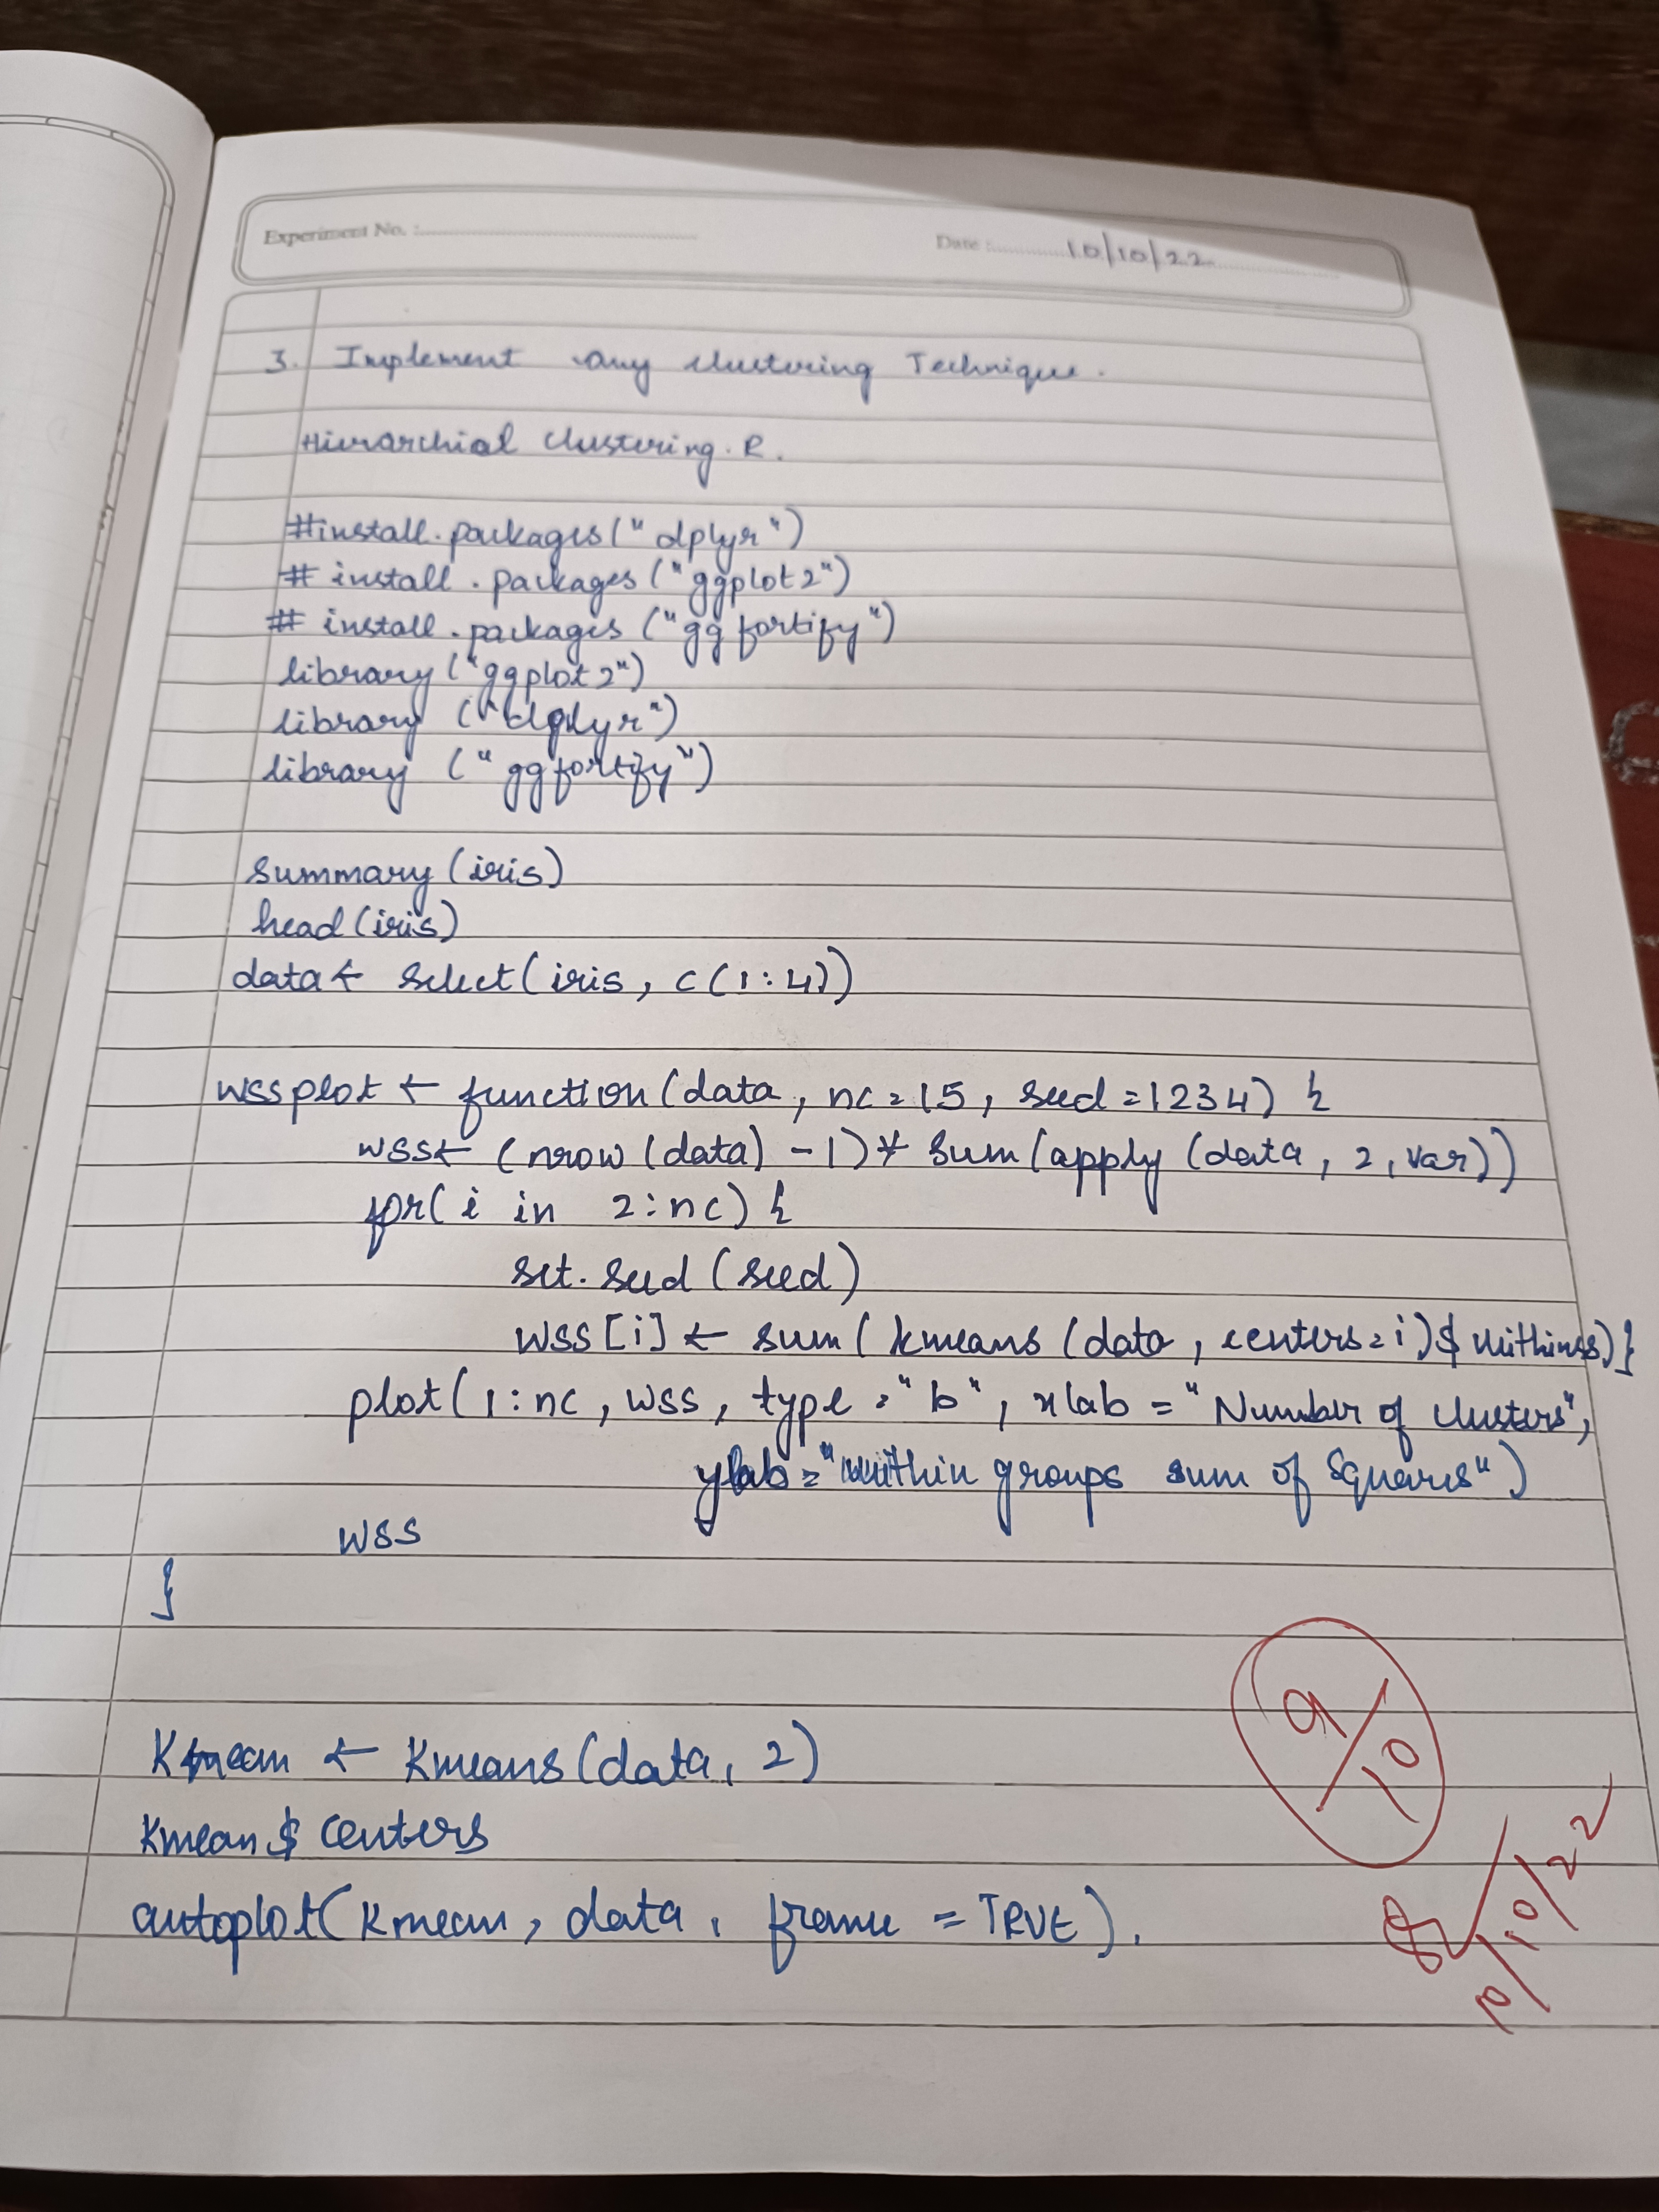 Experiment No. :
Date : 10/10/22
3. Implement any clustering Technique.
Hierarchial Clustering.R.
#install.packages("dplyr")
# install.packages("ggplot2")
# install.packages("ggfortify")
library("ggplot2")
library ("dplyr")
library ("ggfortify")
summary(iris)
head(iris)
data ← select(iris, c(1:4))
wssplot ← function(data, nc=15, seed=1234) {
wss ← (nrow(data) -1)* sum(apply(data, 2, var))
for(i in 2:nc) {
set.seed(seed)
wss[i] ← sum(kmeans(data, centers=i)$withinss)}
plot(1:nc, wss, type="b", xlab="Number of clusters",
ylab="within groups sum of squares")
wss
}
Kmean ← Kmeans(data, 2)
Kmean$centers
autoplot(Kmean, data, frame = TRUE).
9/10
10/10/22